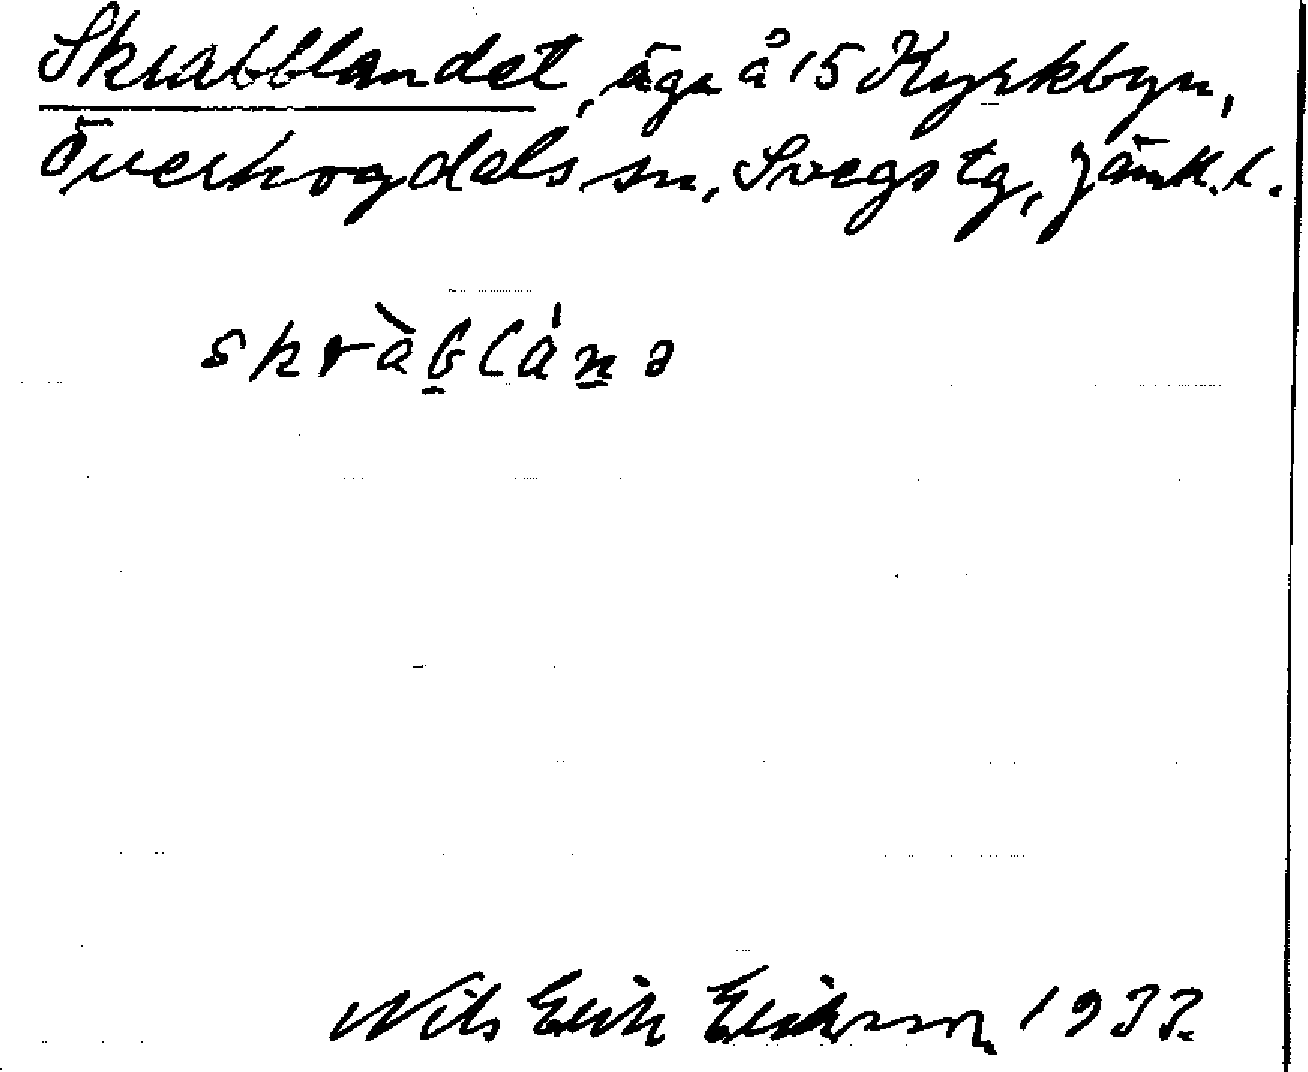 Skrabblandet, äga å 15 Kyrkbyn,
Överhogdals sn, Svegs tg, Jämtl. l.
skràb̲lán̲ə
Nils Erik Eriksson 1933.